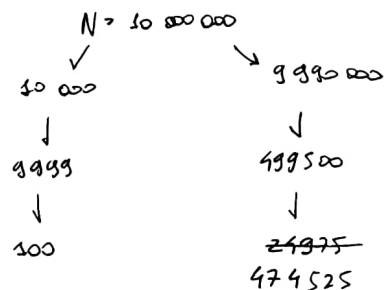 N = 10 000 000
10 000 9 990 000
9999 499500
100 24975
474525